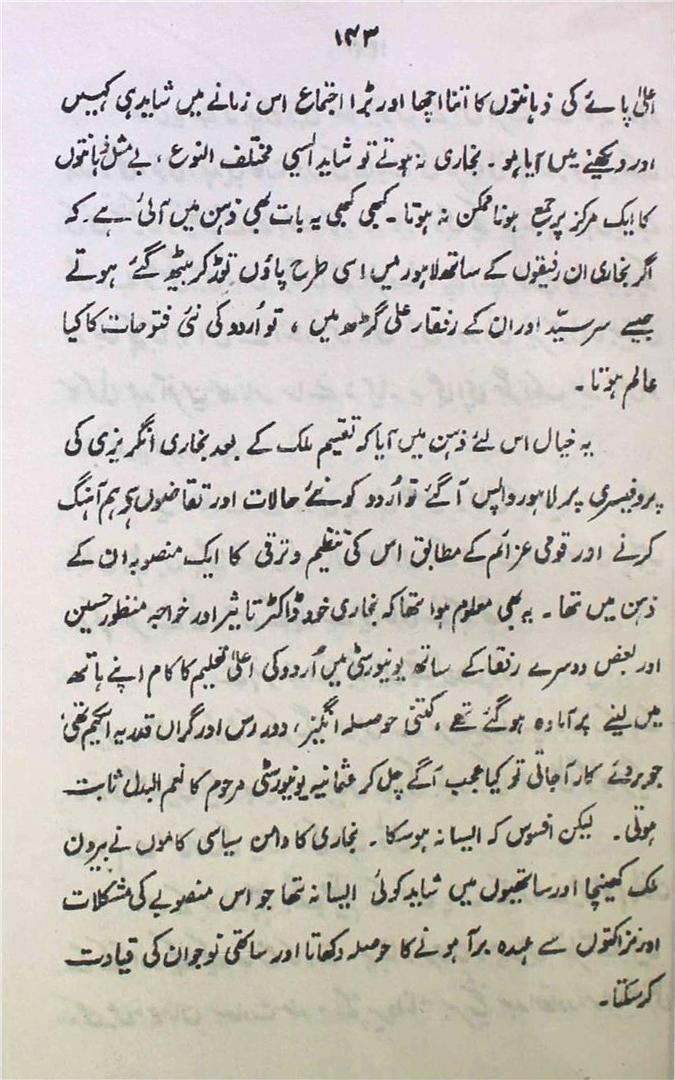 ۱۴۳
اعلیٰ پائے کی ذہانتوں کا اتنا اچھا اور بڑا اجتماع اس زمانے میں شاید ہی کہیں
اور دیکھنے میں آیا ہو۔ بخاری نہ ہوتے تو شاید ایسی مختلف النوع، بے مثل ذہانتوں
کا ایک مرکز پر جمع ہونا ممکن نہ ہوتا۔ کبھی کبھی یہ بات بھی ذہن میں آئی ہے۔ کہ
اگر بخاری ان رفیقوں کے ساتھ لاہور میں اسی طرح پاؤں توڑ کر بیٹھ گئے ہوتے
جیسے سرسیّد اور ان کے رفقار علی گڑھ میں، تو اُردو کی نئی فتوحات کا کیا
عالم ہوتا۔
یہ خیال اس لئے ذہن میں آیا کہ تقسیم ملک کے بعد بخاری انگریزی کی
پروفیسری پر لاہور واپس آگئے تو اُردو کو نئے حالات اور تقاضوں سے ہم آہنگ
کرنے اور قومی عزائم کے مطابق اس کی تنظیم و ترقی کا ایک منصوبہ ان کے
ذہن میں تھا۔ یہ بھی معلوم ہوا تھا کہ بخاری خود ڈاکٹر تاثیر اور خواجہ منظور حسین
اور بعض دوسرے رفقا کے ساتھ یونیورسٹی میں اُردو کی اعلیٰ تعلیم کا کام اپنے ہاتھ
میں لینے پر آمادہ ہو گئے تھے، کتنی حوصلہ انگیز، دور رس اور گراں قدر یہ اسکیم تھی
جو بروئے کار آجاتی تو کیا عجب آگے چل کر عثمانیہ یونیورسٹی مرحوم کا نعم البدل ثابت
ہوتی۔ لیکن افسوس کہ ایسا نہ ہو سکا۔ بخاری کا دامن سیاسی کاموں نے بیرون
ملک کھینچا اور ساتھیوں میں شاید کوئی ایسا نہ تھا جو اس منصوبے کی مشکلات
اور نزاکتوں سے عہدہ برآ ہونے کا حوصلہ دکھاتا اور ساتھی نوجوان کی قیادت
کر سکتا۔